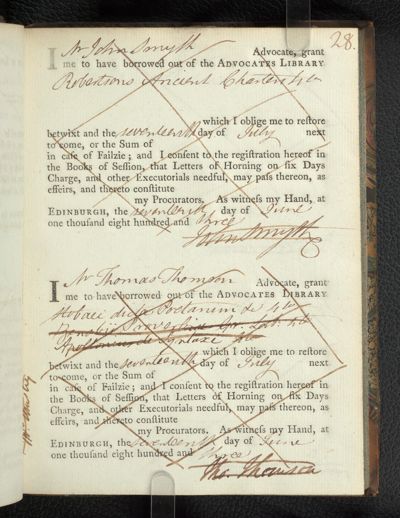 28.
I Mr John Smyth Advocate, grant
me to have borrowed out of the ADVOCATES LIBRARY
Robertsons Ancient Charters 4to
which I oblige me to restore
betwixt and the seventeenth day of July next
to come, or the Sum of
in case of Failzie; and I consent to the registration hereof in
the Books of Session, that Letters of Horning on six Days
Charge, and other Executorials needful, may pass thereon, as
effeirs, and thereto constitute
my Procurators. As witness my Hand, at
EDINBURGH, the seventeenth day of June
one thousand eight hundred and three
John Smyth
I Mr Thomas Thomson Advocate, grant
me to have borrowed out of the ADVOCATES LIBRARY
4to
4to
Apollonius de Syntaxi 4to
which I oblige me to restore
betwixt and the seventeenth day of July next
to come, or the Sum of
in case of Failzie; and I consent to the registration hereof in
the Books of Session, that Letters of Horning on six Days
Charge, and other Executorials needful, may pass thereon, as
effeirs, and thereto constitute
my Procurators. As witness my Hand, at
EDINBURGH, the seventeenth day of June
one thousand eight hundred and three
Tho. Thomson